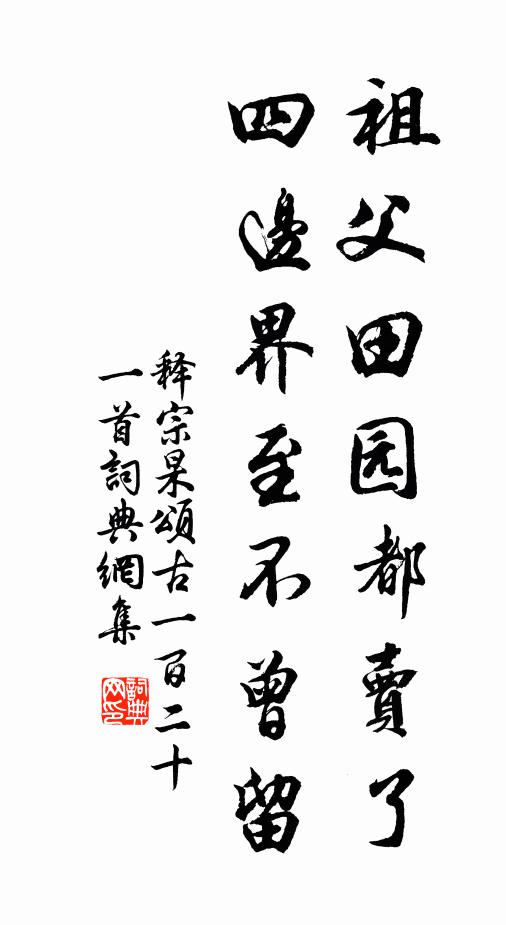 祖父田园都賣了
四邊界至不曾留
释宗杲頌古一百二十
一首詞典網集
詞典
网印